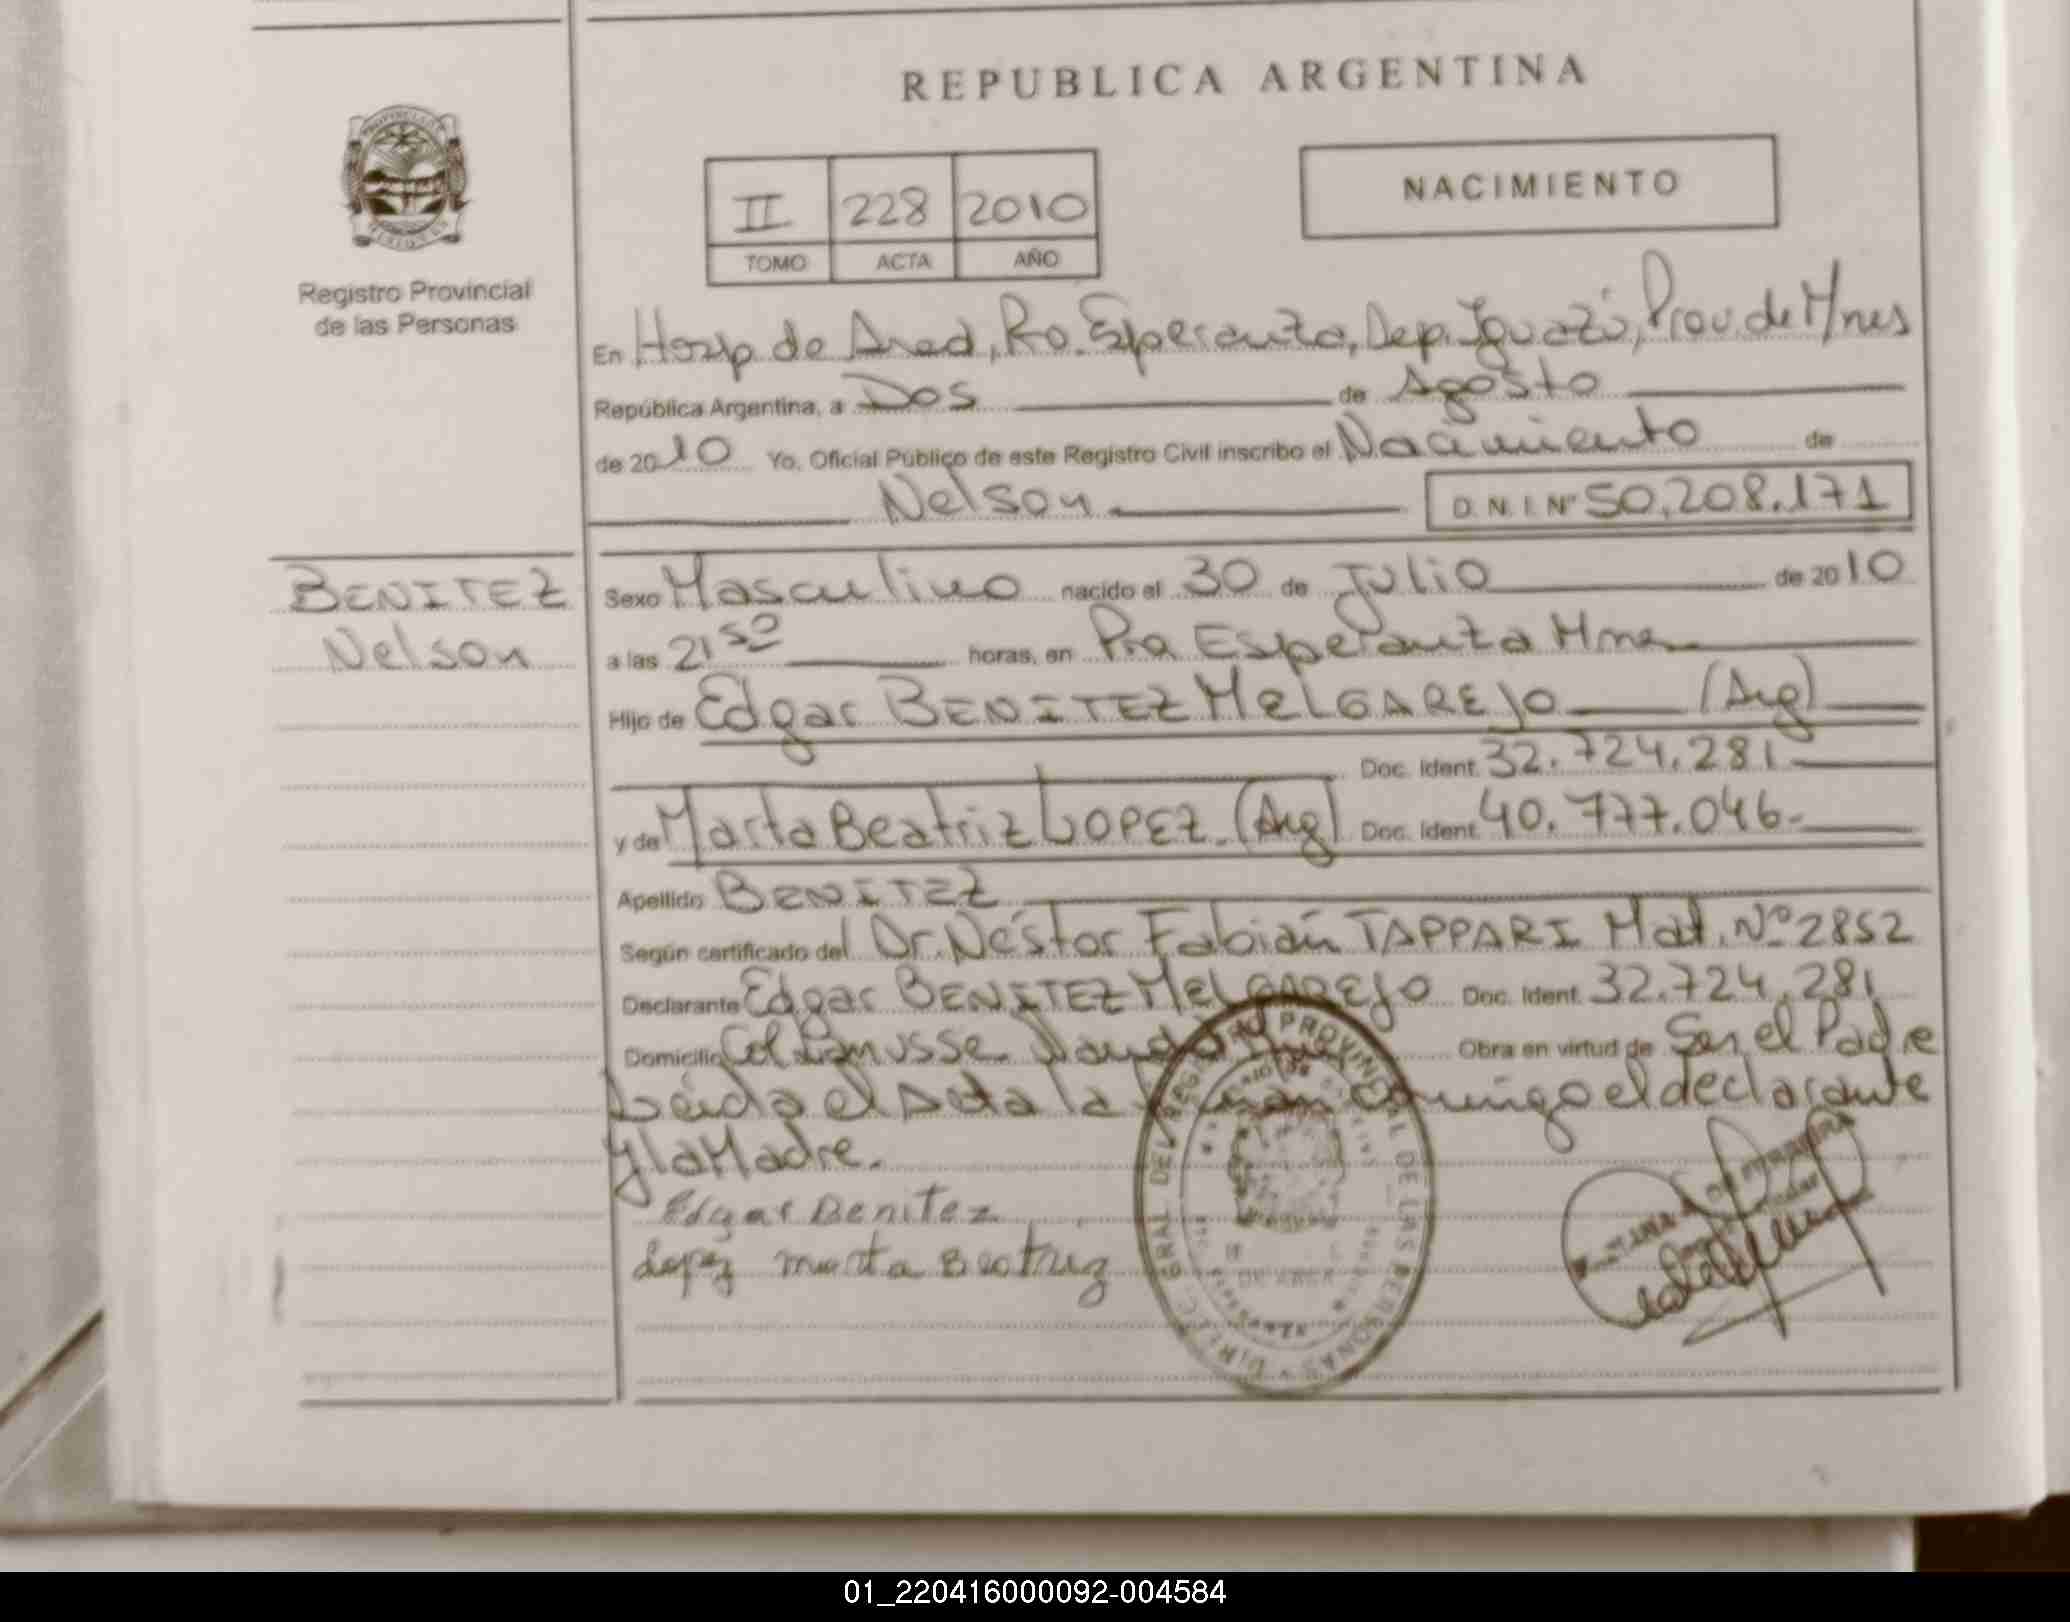 REPUBLICA ARGENTINA
NACIMIENTO
II 228 2010
TOMO ACTA AÑO
Registro Provincial
de las Personas
En Hosp de Area, Pto. Esperanza, Dep. Iguazú, Prov. de Mnes
República Argentina, a Dos de Agosto
de 2010 Yo, Oficial Público de este Registro Civil inscribo el Nacimiento de
Nelson D.N.I. Nº 50.208.171
BENITEZ
Nelson
Sexo Masculino nacido el 30 de Julio de 2010
a las 21 50 horas, en Pto Esperanza Mnes
Hijo de Edgar BENITEZ MELGAREJO (Arg)
Doc. Ident. 32.724.281
y de Marta Beatriz LOPEZ (Arg) Doc. Ident. 40.777.046
Apellido BENITEZ
Según certificado del Dr. Néstor Fabián TAPPARI Mat. Nº 2852
Declarante Edgar BENITEZ MELGAREJO Doc. Ident. 32.724.281
Domicilio Lanusse Obra en virtud de Ser el Padre
Leída el Acta la el declarante
y la Madre.
Edgar Benitez
Lopez Marta Beatriz
DIREC. GRAL. DEL REGISTRO PROVINCIAL DE LAS PERSONAS
01_220416000092-004584